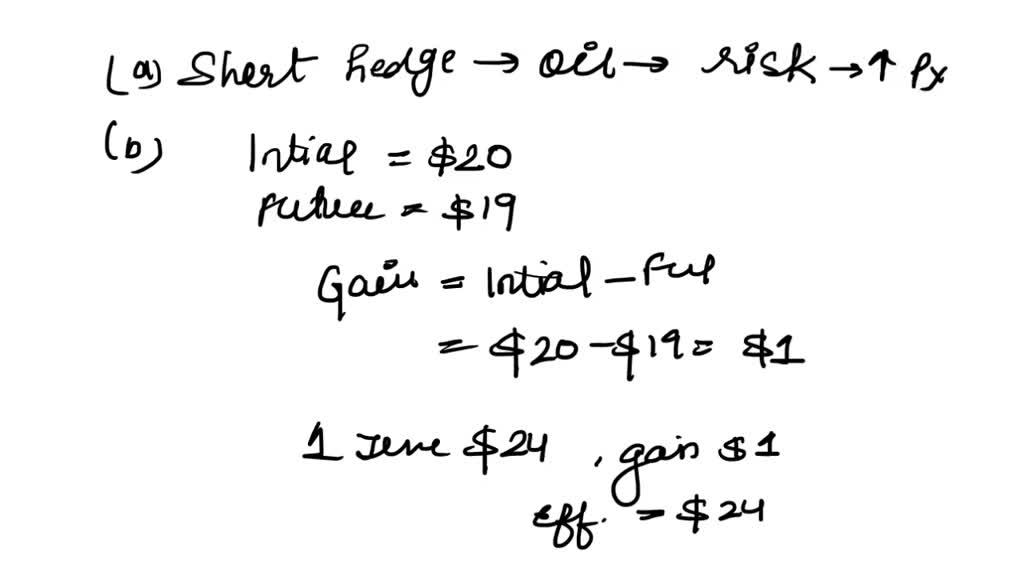 (a) Short hedge → oil → risk → ↑ Px
(b) Intial = $20
Future = $19
Gain = Intial - Fut
= $20 - $19 = $1
1 June $24 , gain $1
eff. = $24